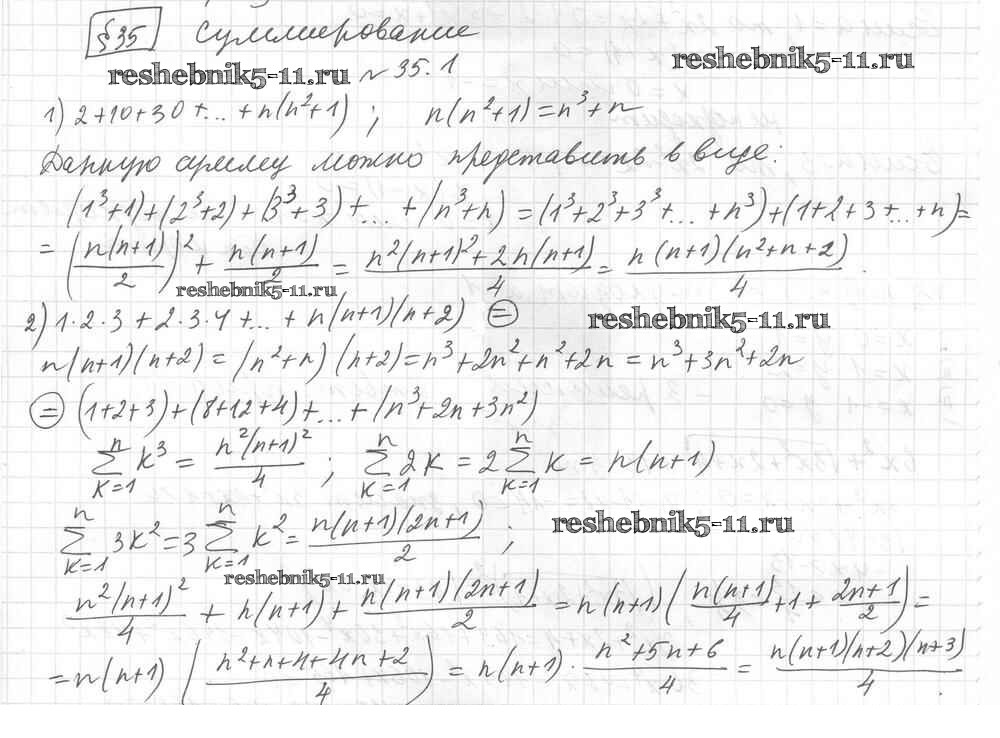 §35 Суммирование
reshebnik5-11.ru № 35.1 reshebnik5-11.ru
1) 2+10+30+...+n(n²+1) ; n(n²+1)=n³+n
Данную сумму можно представить в виде:
(1³+1)+(2³+2)+(3³+3)+...+(n³+n)=(1³+2³+3³+...+n³)+(1+2+3+...+n)=
= (n(n+1)/2)² + n(n+1)/2 = (n²(n+1)²+2n(n+1))/4 = n(n+1)(n²+n+2)/4 .
reshebnik5-11.ru
2) 1·2·3+2·3·4+...+n(n+1)(n+2) ⊜ reshebnik5-11.ru
n(n+1)(n+2)=(n²+n)(n+2)=n³+2n²+n²+2n=n³+3n²+2n
⊜ (1+2+3)+(8+12+4)+...+(n³+2n+3n²)
∑ₖ₌₁ⁿ k³ = n²(n+1)²/4 ; ∑ₖ₌₁ⁿ 2k = 2∑ₖ₌₁ⁿ k = n(n+1)
∑ₖ₌₁ⁿ 3k² = 3∑ₖ₌₁ⁿ k² = n(n+1)(2n+1)/2 ; reshebnik5-11.ru
reshebnik5-11.ru
n²(n+1)²/4 + n(n+1) + n(n+1)(2n+1)/2 = n(n+1)(n(n+1)/4+1+(2n+1)/2)=
=n(n+1)((n²+n+4+4n+2)/4) = n(n+1)·(n²+5n+6)/4 = n(n+1)(n+2)(n+3)/4 .